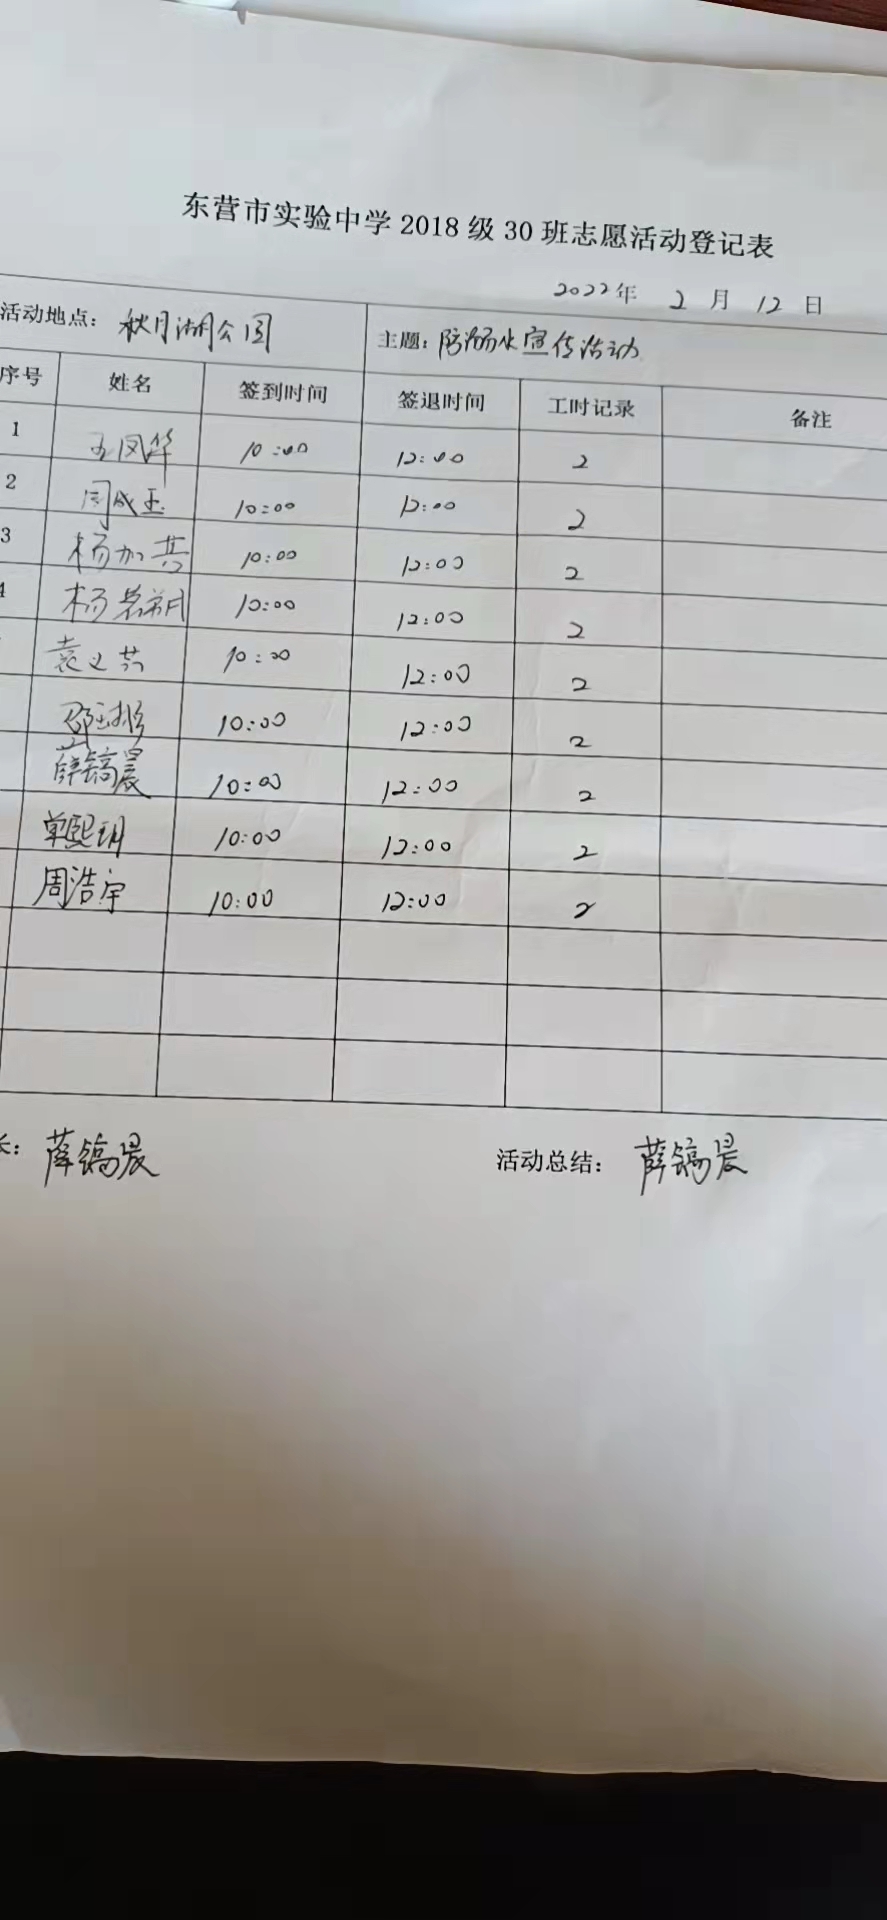 东营市实验中学2018级30班志愿活动登记表
2022年 2月 12日
活动地点：秋月湖公园 主题：防溺水宣传活动
序号 姓名 签到时间 签退时间 工时记录 备注
1 王凤华 10:00 12:00 2
2 周成玉 10:00 12:00 2
3 杨加 10:00 12:00 2
4 杨 10:00 12:00 2
袁义芬 10:00 12:00 2
邵 10:00 12:00 2
薛镐晨 10:00 12:00 2
单熙玥 10:00 12:00 2
周浩宇 10:00 12:00 2
长：薛镐晨 活动总结：薛镐晨